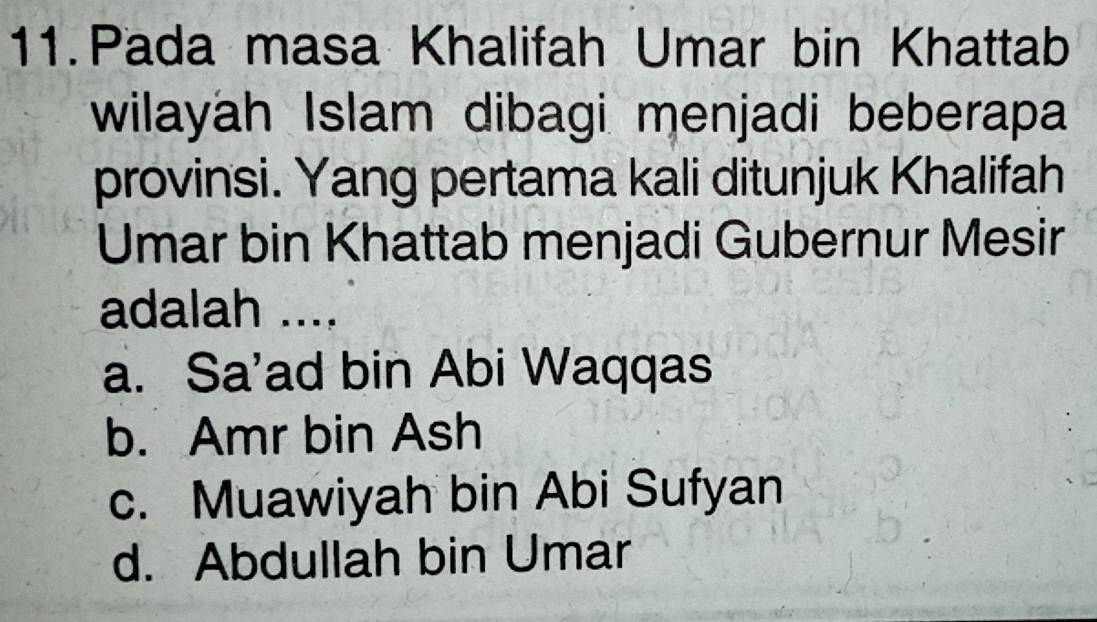 11. Pada masa Khalifah Umar bin Khattab
wilayah Islam dibagi menjadi beberapa
provinsi. Yang pertama kali ditunjuk Khalifah
Umar bin Khattab menjadi Gubernur Mesir
adalah ....
a. Sa'ad bin Abi Waqqas
b. Amr bin Ash
c. Muawiyah bin Abi Sufyan
d. Abdullah bin Umar